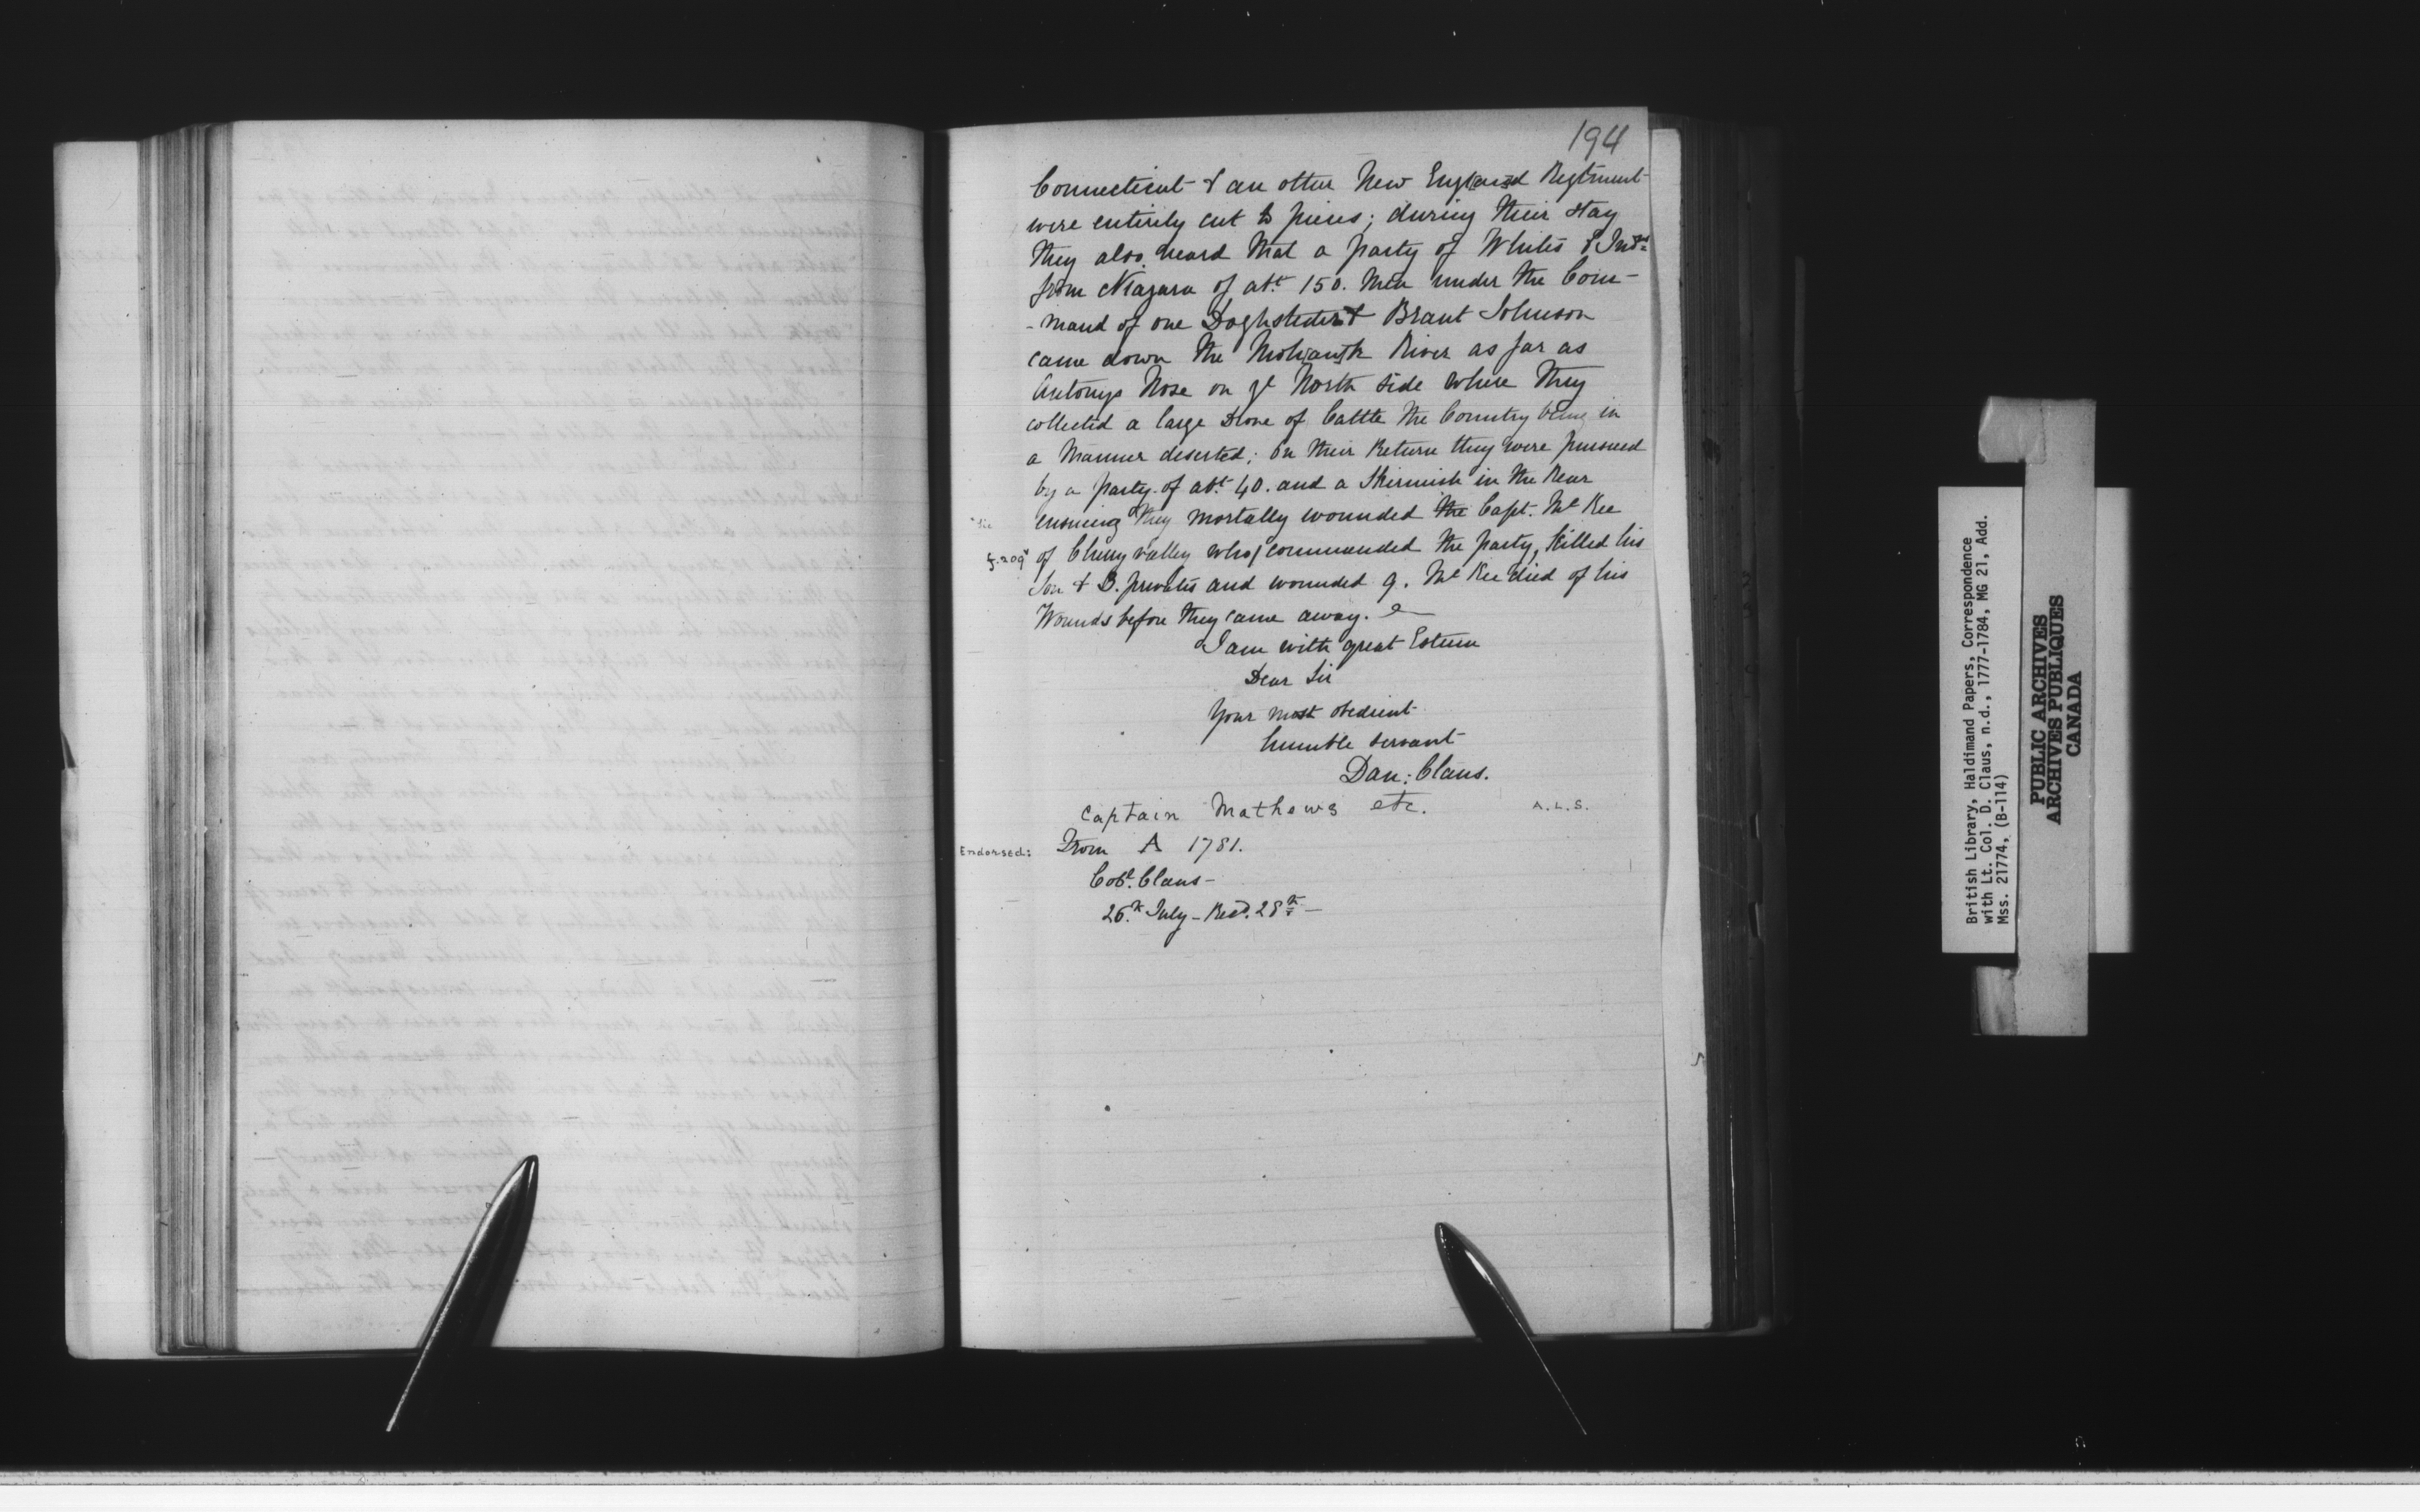 194
Connecticut & an other New England Regiment
were entirely cut to pieces; during their stay
they also heard that a party of Whites & Inds
from Niagara of abt. 150. Men under the Com-
-mand of one Doghsteder & Brant Johnson
came down the Mohawk River as far as
Antonys Nose on ye North side where they
collected a large Drove of Cattle the Country being in
a Manner deserted; On their Return they were pursued
by a party of abt. 40. and a Skirmish in the Rear
ensuing they mortally wounded the Capt. Mc Kee
f. 209v of Cherry valley who commanded the party, killed his
Son & 3. privates and wounded 9. Mc Kee died of his
Wounds before they came away.
I am with great Esteem
Dear Sir
Your most obedient
humble servant
Dan: Claus.
Captain Mathews etc. A.L.S.
Endorsed: From A 1781.
Col. Claus-
26.th July - Recd. 28th -
British Library, Haldimand Papers, Correspondence
with Lt. Col. D. Claus, n.d., 1777-1784, MG 21, Add.
Mss. 21774, (B-114)
PUBLIC ARCHIVES
ARCHIVES PUBLIQUES
CANADA